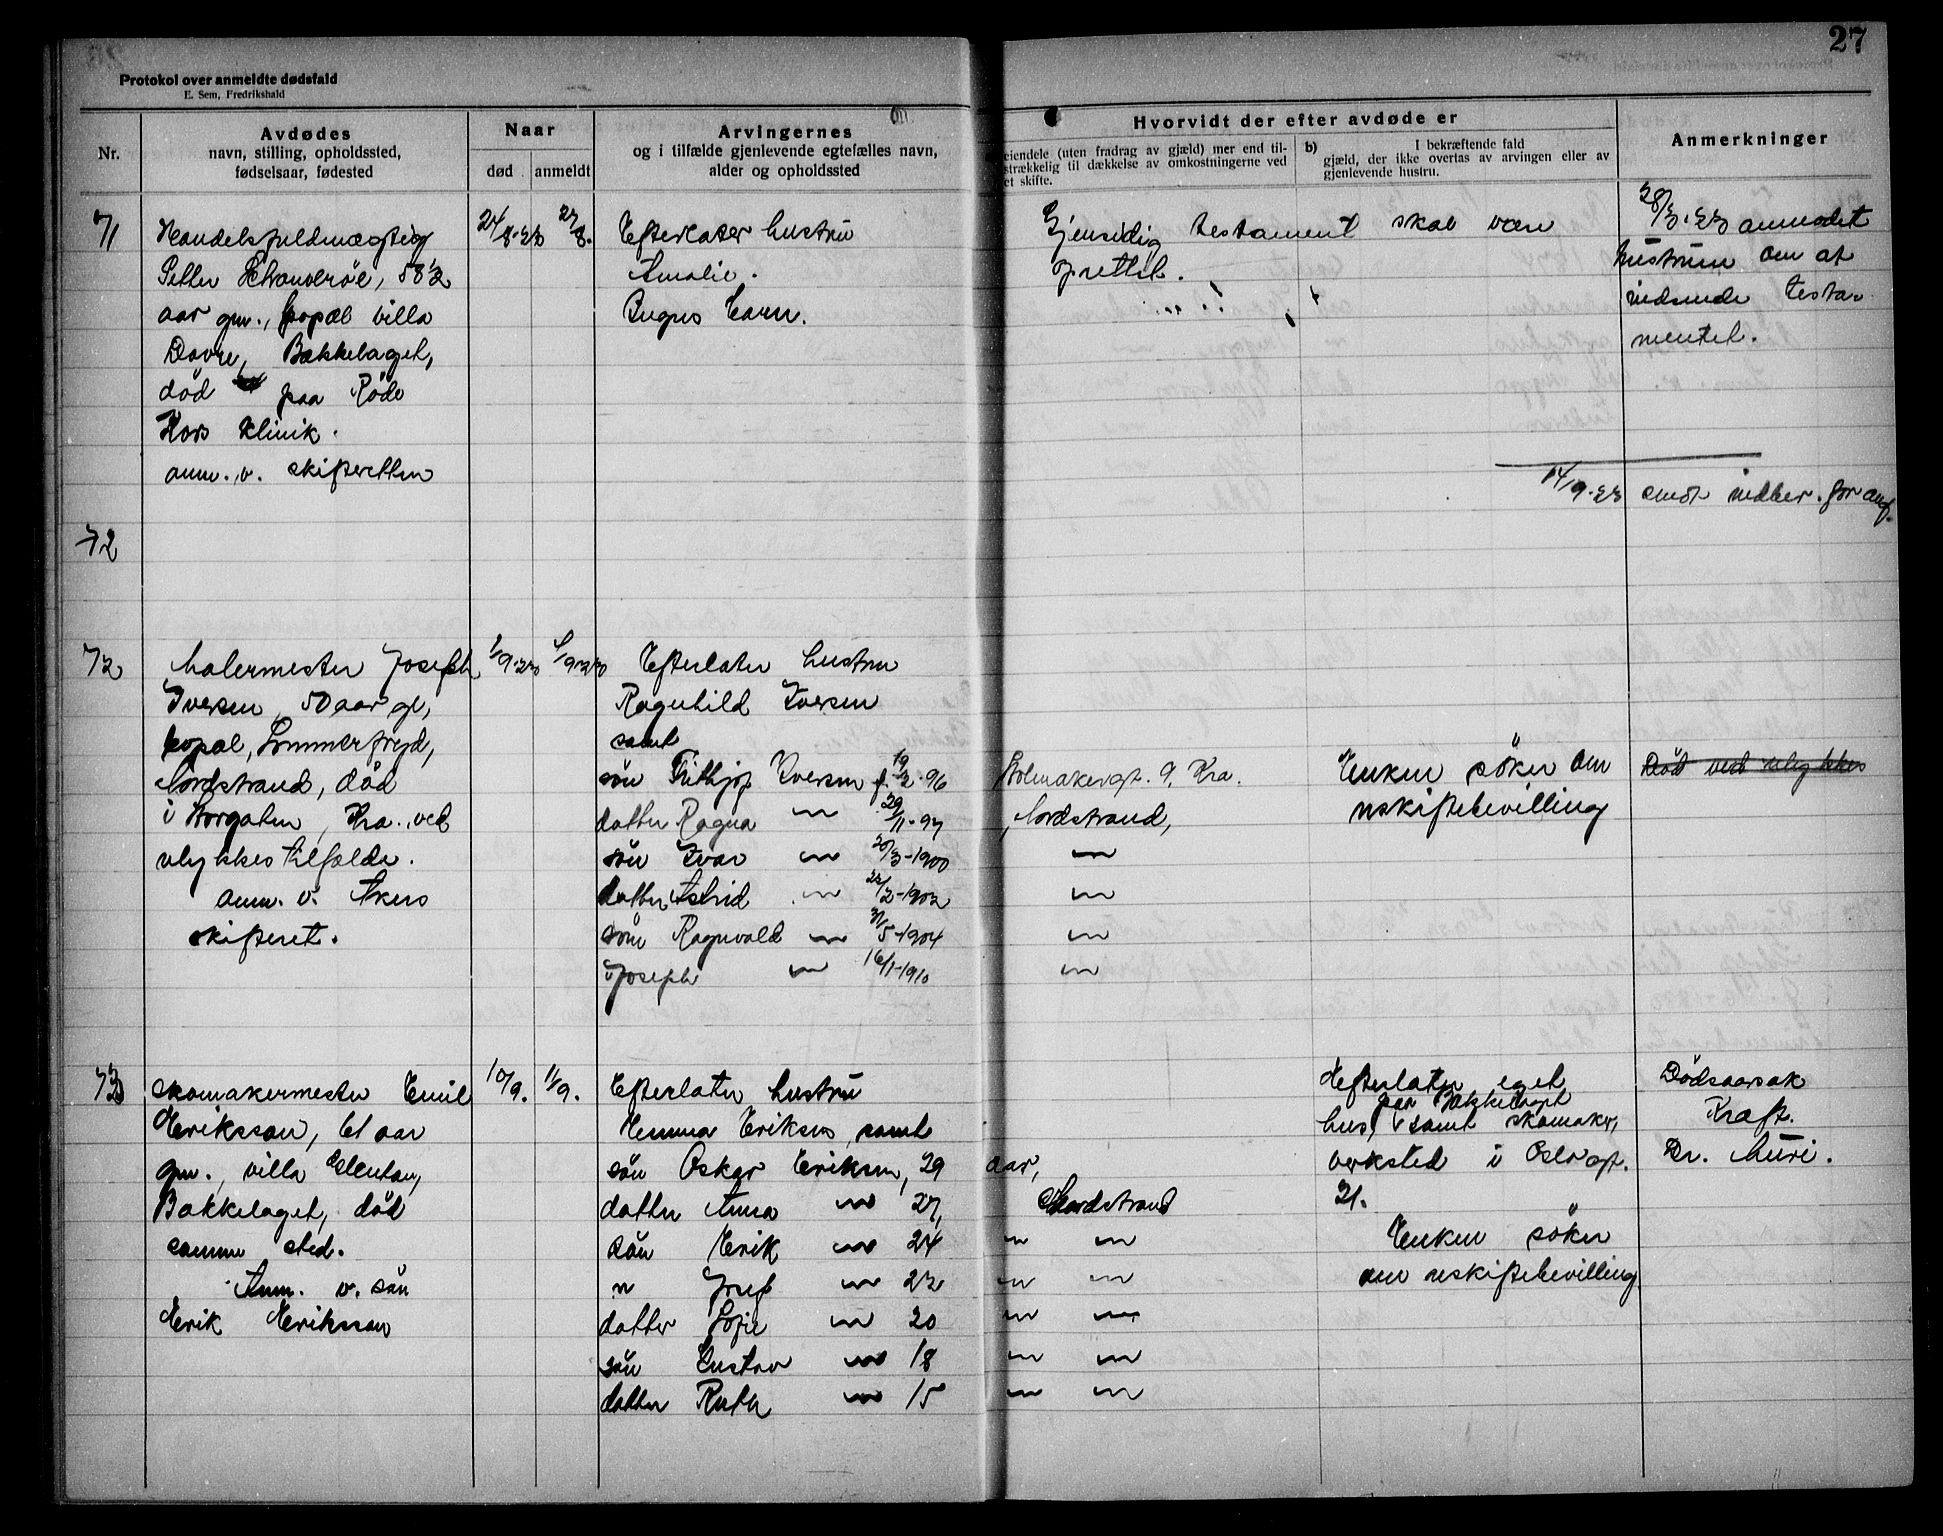 27
Protokol over anmeldte dødsfald
E. Sem, Fredrikshald
Nr.
Avdødes
navn, stilling, opholdssted,
fødselsaar, fødested
Naar
død
anmeldt
Arvingernes
og i tilfælde gjenlevende egtefælles navn,
alder og opholdssted
Hvorvidt der efter avdøde er
eiendele (uten fradrag av gjæld) mer end til-
strækkelig til dækkelse av omkostningerne ved
et skifte.
b) I bekræftende fald
gjæld, der ikke overtas av arvingen eller av
gjenlevende hustru.
Anmerkninger
71
Handelsfuldmægtig
Petter 58 1/2
aar gm., bopæl villa
Dovre, Bækkelaget,
död paa Röde
Kors Klinik.
anm. v. skifteretten
24/8-23
27/8.
Efterlater hustru
Amalie.
Ingen barn.
Gjensidig testament skal være
oprettet.
28/8-23 anmodet
hustruen om at
indsende testa-
mentet.
14/9-23 sendt indber. for
72
72
Malermester Joseph
Iversen, 50 aar gl,
bopæl, Sommerfryd,
Nordstrand, död
i Borgaten, Kra. ved
ulykkestilfælde.
anm. v. Akers
skifteret.
1/9-23
4/9-23
Efterlater hustru
Ragnhild Iversen
samt
sön Frithjof Iversen f. 19/2-96 Holmakergt. 9. Kra.
datter Ragna — 29/11-97 Nordstrand,
sön Ivar — 20/3-1900 —
datter Astrid — 22/2-1902 —
sön Ragnvald — 31/5-1904 —
" Joseph — 16/1-1910 —
Enken söker om
uskiftebevilling
Död ved ulykkes
73
Skomakermester Emil
Eriksson, 61 aar
gm., villa
Bækkelaget, död
samme sted.
Anm. v. sön
Erik Eriksson
10/9.
11/9.
Efterlater hustru
Hemma Eriksen, samt
sön Oskar Eriksen, 29 aar,
datter Anna — 27, Nordstrand
sön Erik — 24 — —
" Josef — 22 — —
datter Sofie — 20 — —
sön Gustav — 18 — —
datter Ruth — 15 — —
Efterlater eget
paa Bækkelaget
hus, samt skomaker,
verksted i Oslo gt.
21.
Enken söker
om uskiftebevilling
Dödsaarsak
Kræft.
Dr. Muri.